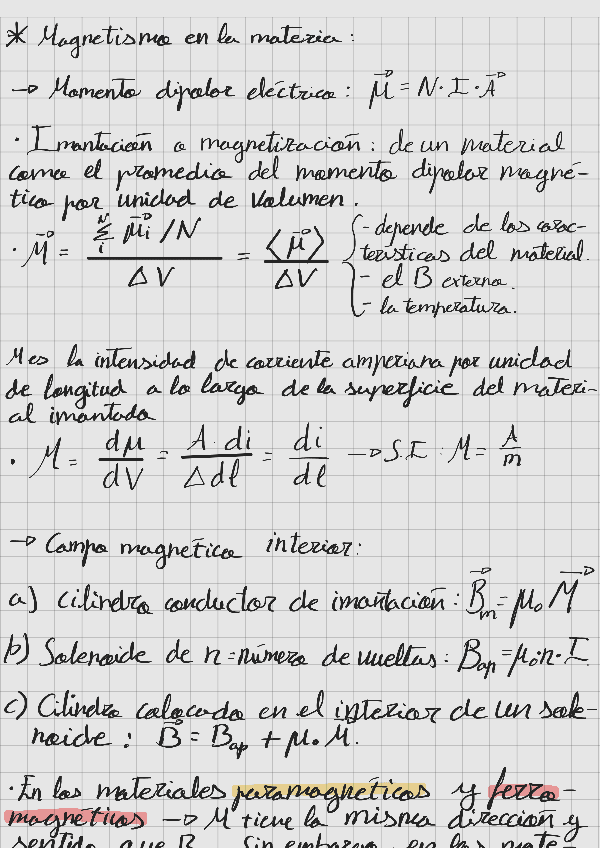 * Magnetismo en la materia:
→ Momento dipolar eléctrico: μ⃗ = N · I · A⃗
· Imantación o magnetización: de un material
como el promedio del momento dipolar magné-
tico por unidad de volumen.
· M⃗ = (Σᵢᴺ μ⃗i / N) / ΔV = ⟨μ⃗⟩ / ΔV { - depende de las carac-
terísticas del material.
- el B externo.
- la temperatura.
M es la intensidad de corriente amperiana por unidad
de longitud a lo largo de la superficie del materi-
al imantado
· M = dμ/dV = A · di / Δdl = di/dl → S.I : M = A/m
→ Campo magnético interior:
a) cilindro conductor de imantación: B⃗m = μ₀ M⃗
b) Solenoide de n = número de vueltas: Bap = μ₀ · n · I
c) Cilindro colocado en el interior de un sole-
noide: B⃗ = Bap + μ₀ M.
· En los materiales paramagnéticos y ferro-
magnéticos → M tiene la misma dirección y
sentido que B. Sin embargo, en los mate-